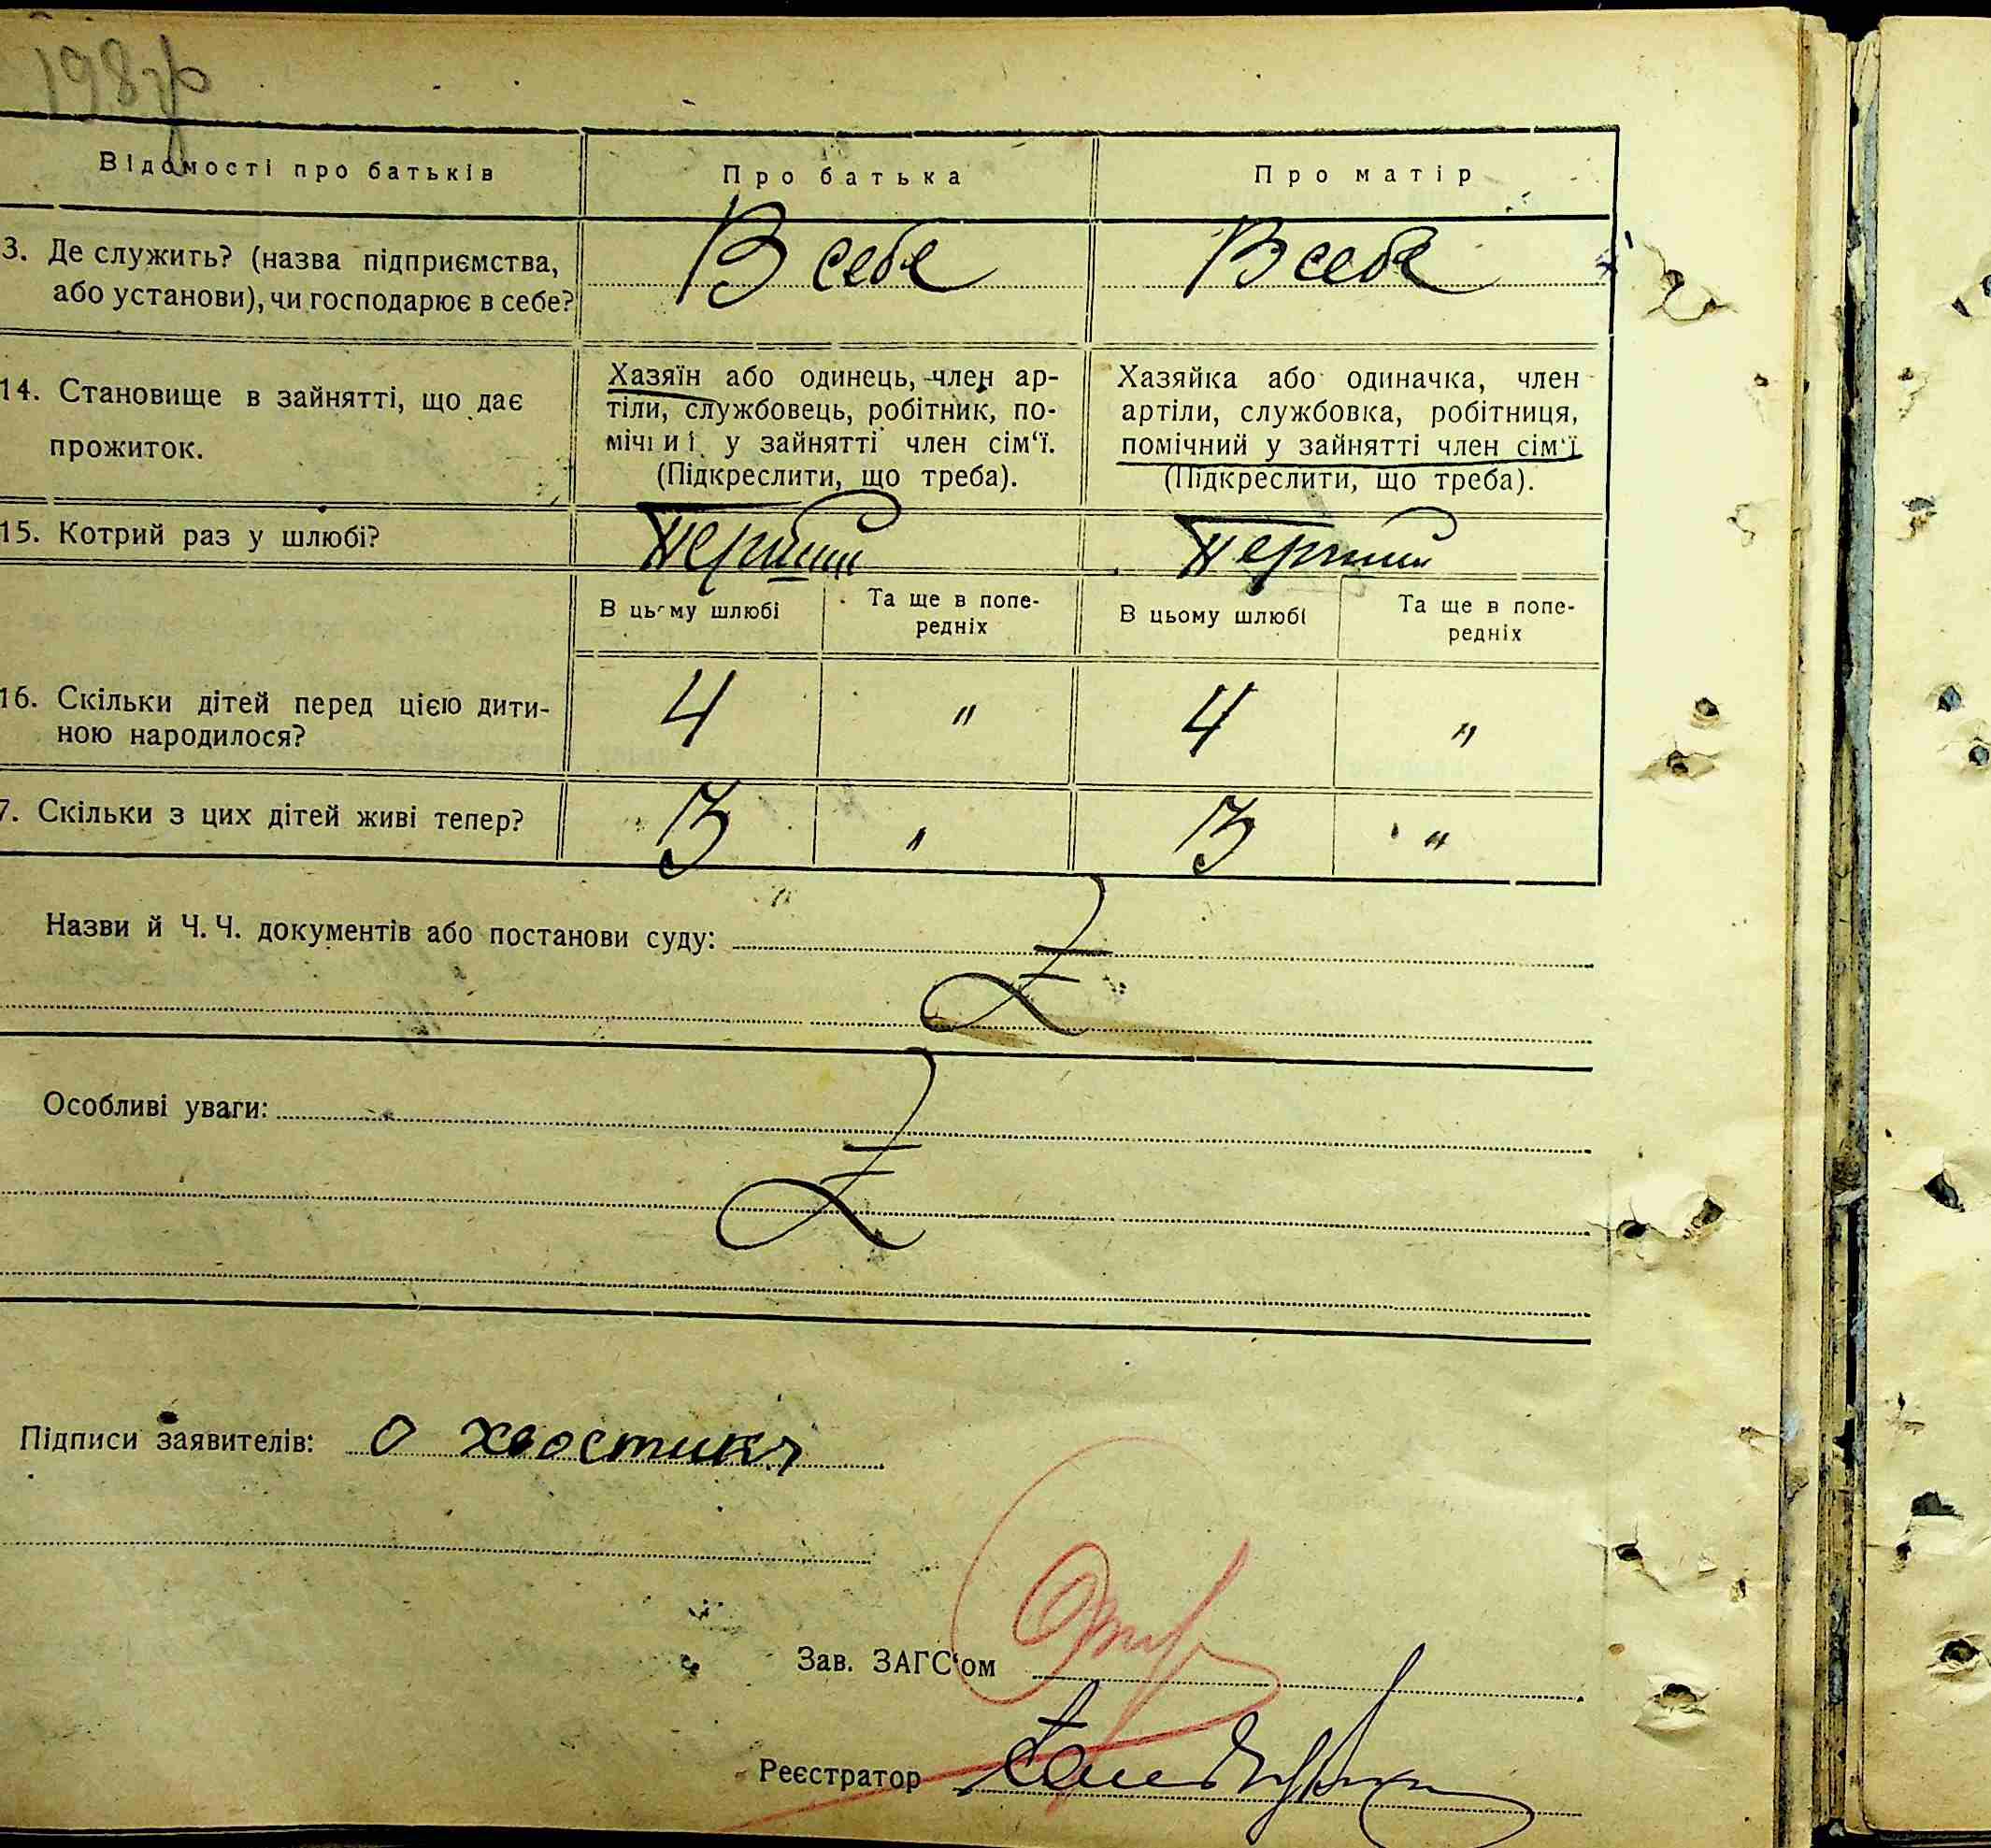 198
Відомості про батьків
Про батька
Про матір
3. Де служить? (назва підприємства,
або установи), чи господарює в себе?
В себе
В себе
14. Становище в зайнятті, що дає
прожиток.
Хазяїн або одинець, член ар-
тіли, службовець, робітник, по-
мічний у зайнятті член сім‘ї.
(Підкреслити, що треба).
Хазяйка або одиначка, член
артіли, службовка, робітниця,
помічний у зайнятті член сім‘ї
(Підкреслити, що треба).
15. Котрий раз у шлюбі?
Перший
Перший
В цьому шлюбі
Та ще в попе-
редніх
В цьому шлюбі
Та ще в попе-
редніх
16. Скільки дітей перед цією дити-
ною народилося?
4 " 4 "
7. Скільки з цих дітей живі тепер?
3 " 3 "
Назви й Ч. Ч. документів або постанови суду:
Особливі уваги:
Підписи заявителів: О
Зав. ЗАГС‘ом
Реєстратор